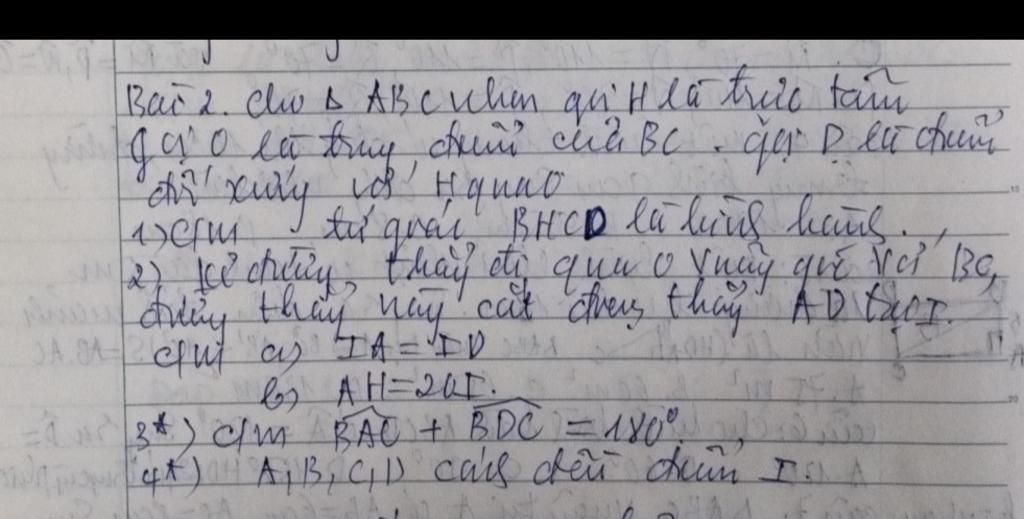 Bài 2. cho Δ ABC nhọn gọi H là trực tâm
gọi O là trung điểm của BC. gọi D là điểm
đối xứng với H qua O
1) C/m tứ giác BHCD là hình bình hành.
2) Kẻ đường thẳng đi qua O vuông góc với BC,
đường thẳng này cắt đường thẳng AD tại I.
C/m a) IA = ID
b) AH = 2OI.
3*) C/m BAC + BDC = 180°
4*) A, B, C, D cách đều điểm I.